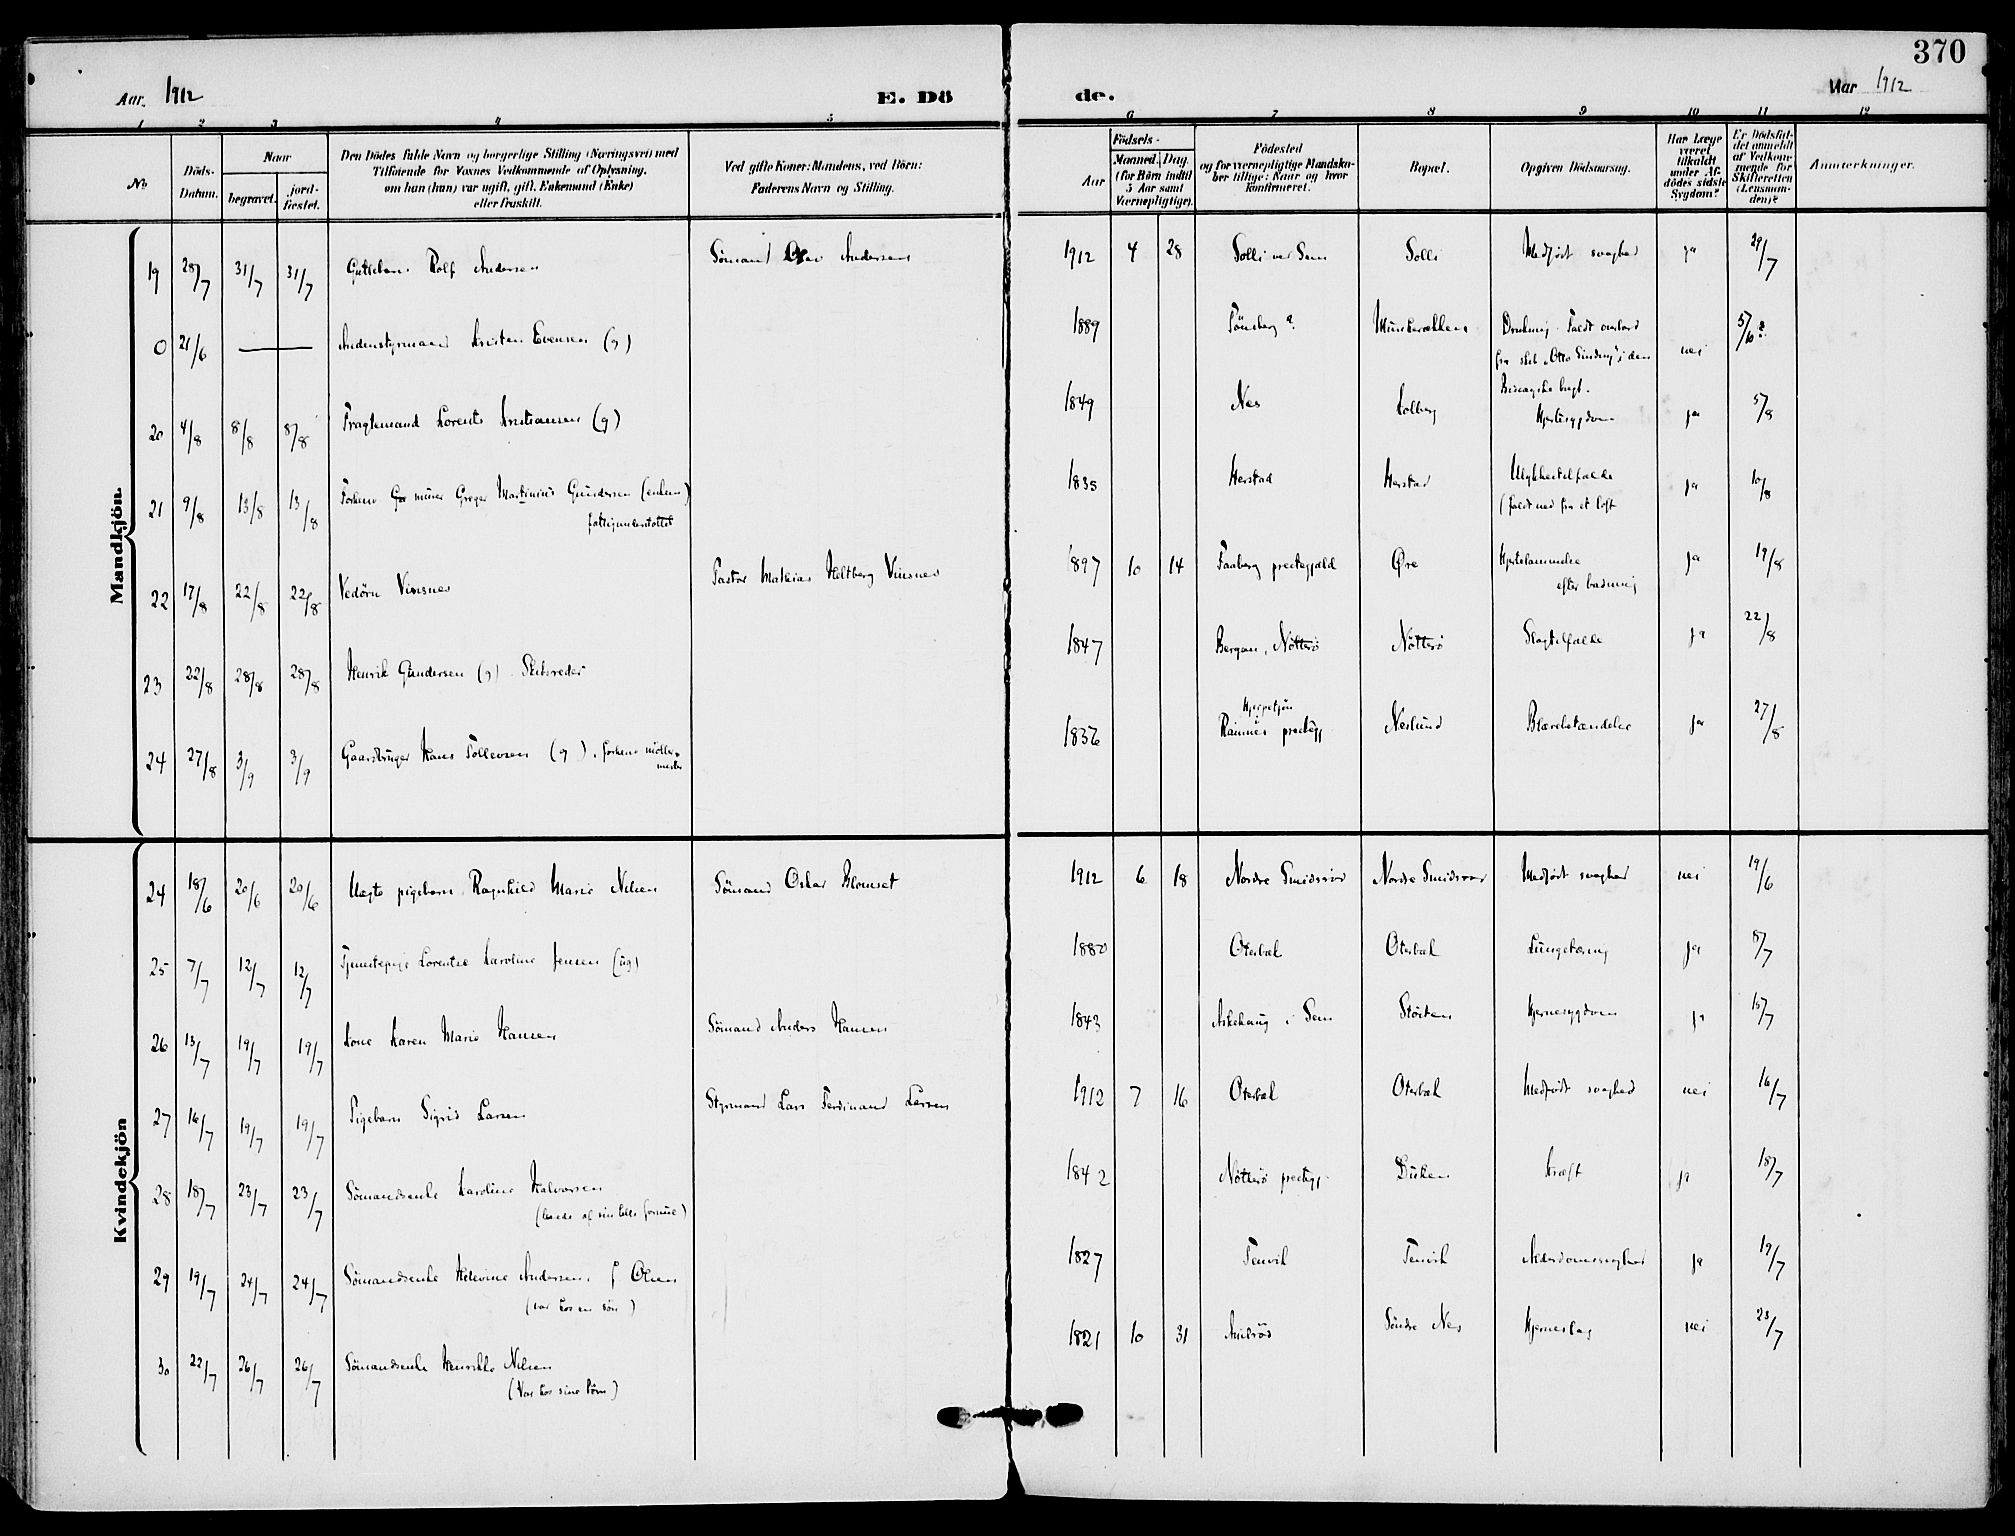 370
Aar. 1912
E. Dö
de.
Aar 1912
1 2 3 4 5 6 7 8 9 10 11 12
No
Döds-
Datum.
Naar
begravet.
jord-
fæstet.
Den Dödes fulde Navn og borgerlige Stilling (Næringsvei) med
Tilföiende for Voxnes Vedkommende af Oplysning,
om han (hun) var ugift, gift, Enkemand (Enke)
eller fraskilt.
Ved gifte Koner: Mandens, ved Börn:
Faderens Navn og Stilling.
Födsels-
Aar
Maaned. Dag.
(for Börn indtil
5 Aar samt
Værnepligtige).
Födested
og for værnepligtige Mandska-
ber tillige: Naar og hvor
konfirmeret.
Bopæl.
Opgiven Dödsaarsag.
Har Læge
været
tilkaldt
under Af-
dödes sidste
Sygdom?
Er Dödsfal-
det anmeldt
af Vedkom-
mende for
Skifteretten
(Lensman-
den)?
Anmærkninger.
Mandkjön.
19 28/7 31/7 31/7 Guttebarn Rolf Andersen Sömand Andersen 1912 4 28 Solli ved Sem Solli Medfödt svaghed ja 29/7
0 21/6 — Andenstyrmand Kristen Evensen (g) 1889 Tönsberg? Munkerekken Drukning. Faldt overbord
fra skib "Otto Sinding" i den nei 5/6?
Biscayske bugt.
20 4/8 8/8 8/8 Fragtemand Lorents Kristiansen (g) 1849 Nes Kolberg Hjertesygdom ja 5/8
21 9/8 13/8 13/8 Forhenv murer Greger Martinius Gundersen (enkem) 1835 Herstad Herstad Ulykkestilfælde ja 10/8
fattigunderstöttet (faldt ned fra et loft
22 17/8 22/8 22/8 Vedörn Vinsnes Pastor Mathias Heltberg Vinsnes 1897 10 14 Faaberg prestegjæld Øre Hjertelammelse ja 19/8
efter badning
23 22/8 28/8 28/8 Henrik Gundersen (g) Skibsreder 1847 Bergan, Nötterö Nötterö Slagtilfælde ja 22/8
24 27/8 3/9 3/9 Gaardbruger Hans Tollevsen (g), forhenv 1836 Ramnes prestegj Neslund Blærebetændelse ja 27/8
Kvindekjön
24 18/6 20/6 20/6 Uegte pigebarn Ragnhild Marie Nilsen Sömand Oskar Blomset 1912 6 18 Nordre Smidsröd Nordre Smidsröd Medfödt svaghed nei 19/6
25 7/7 12/7 12/7 Tjenestepige Lorentse Karoline Jensen (ug) 1880 Oterbæk Oterbæk Lungetæring ja 8/7
26 13/7 19/7 19/7 Kone Karen Marie Hansen Sömand Anders Hansen 1843 Askehaug i Sem Störten Hjernesygdom ja 15/7
27 16/7 19/7 19/7 Pigebarn Sigrid Larsen Styrmand Lars Ferdinand Larsen 1912 7 16 Oterbæk Oterbæk Medfödt svaghed nei 16/7
28 18/7 23/7 23/7 Sömandsenke Karoline Halvorsen 1842 Nötterö prestegj. Duken Kræft ja 18/7
(levede af sin lille formue)
29 19/7 24/7 24/7 Sömandsenke Helevine Andersen, f Olsen 1827 Tenvik Tenvik Alderdomssvaghed ja 19/7
(var hos en sön)
30 22/7 26/7 26/7 Sömandsenke Henrikke Nilsen 1821 10 31 Amlröd Söndre Nes Hjerneslag nei 23/7
(Var hos sine börn)